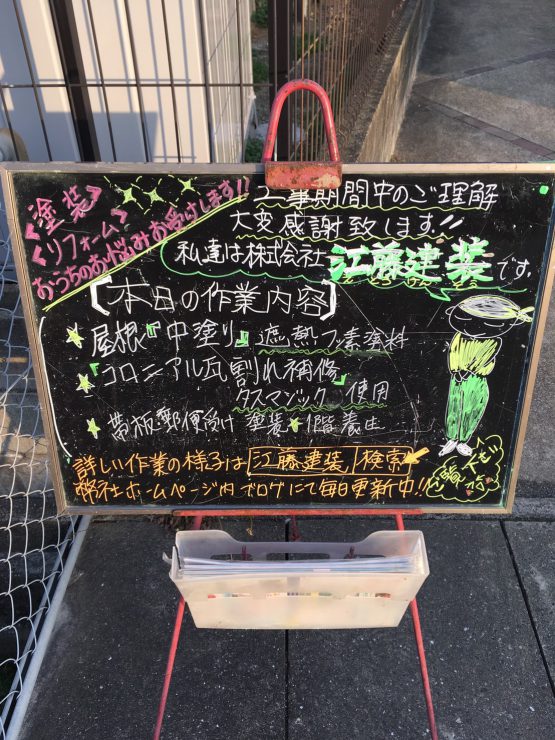 《塗装》
《リフォーム》
おうちのお悩みお受けします!!
工事期間中のご理解
大変感謝致します!!
私達は株式会社 江藤建装です。
えとうけんそう
【本日の作業内容】
★屋根『中塗り』遮熱フッ素塗料
★『コロニアル瓦割れ補修』
タスマジック 使用
★帯板・郵便受け 塗装★1階養生
詳しい作業の様子は 江藤建装 検索
弊社ホームページ内ブログにて毎日更新中!!